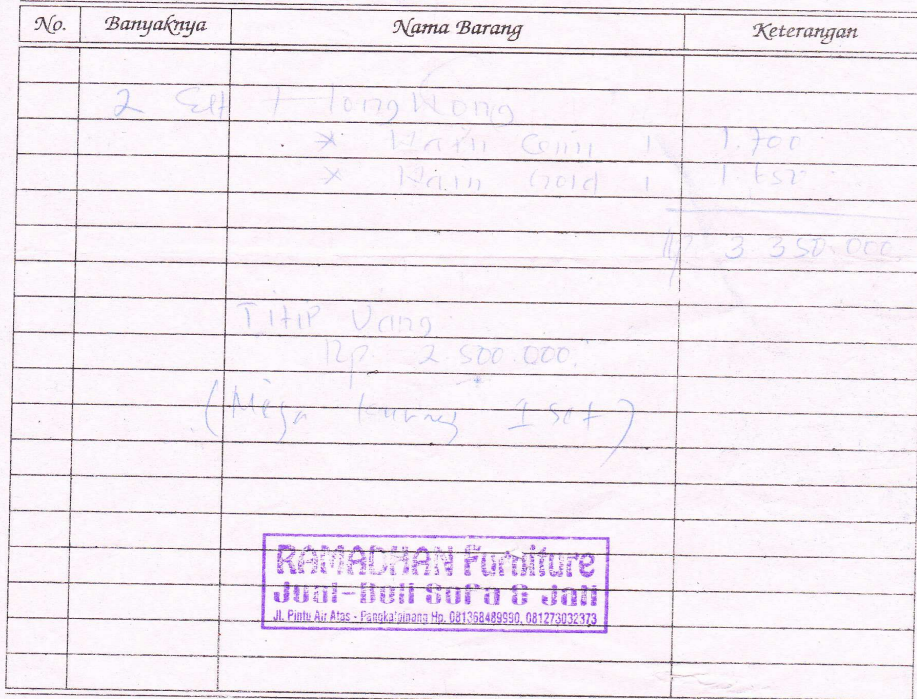 No. Banyaknya Nama Barang Keterangan
2 Set
* Kain 1 1.700
* Kain Gold 1 1.650
Rp 3.350.000
Titip Uang
Rp. 2.500.000.
(Meja kurang 1 set)
RAMADHAN Furniture
Jual-Beli SoFa & Jati
Jl. Pintu Air Atas - Pangkalpinang Hp. 081368489990, 081273032373